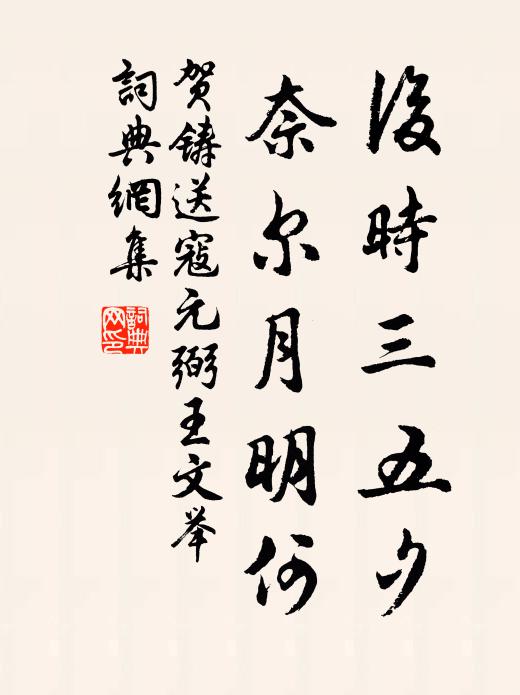 後時三五夕
奈尔月明何
贺鑄送寇元弼王文举
詞典網集
詞典网印